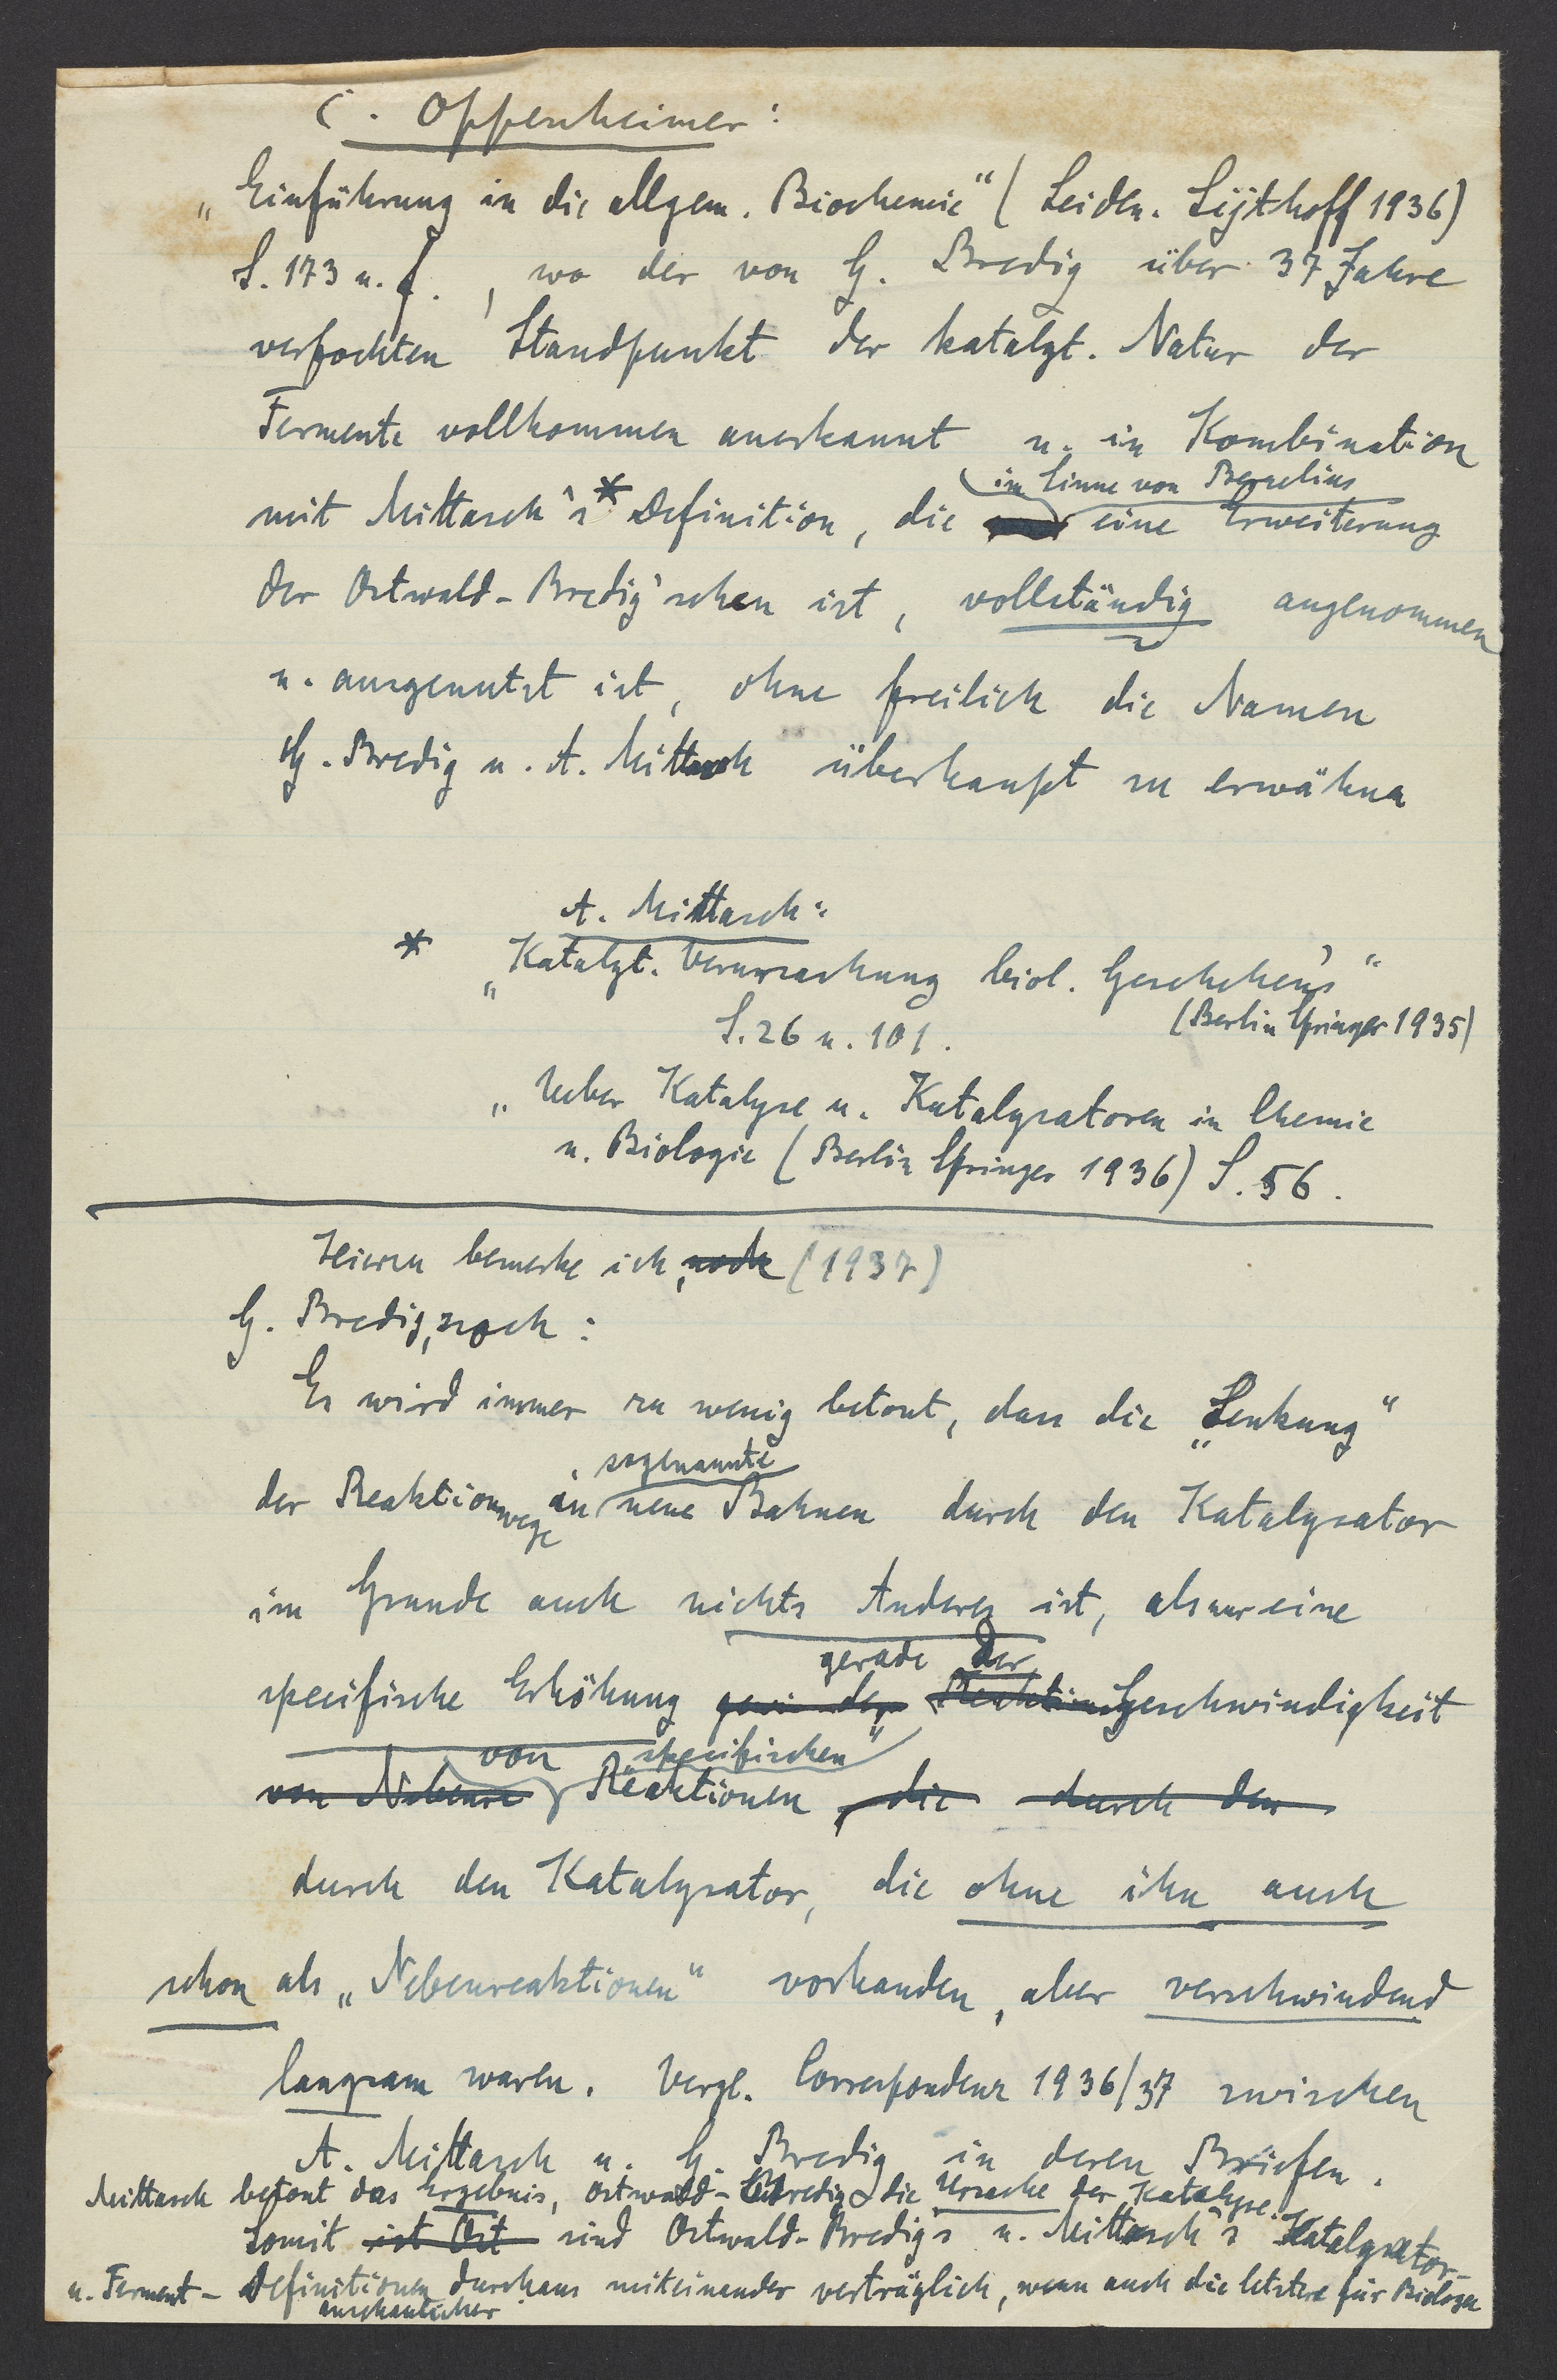 C. Oppenheimer:
„Einführung in die allgem. Biochemie“ (Leiden. Sijthoff 1936)
S. 173 u. f. , wo der von G. Bredig über 37 Jahre
verfochten Standpunkt der katalyt. Natur der
Fermente vollkommen anerkannt u. in Kombination
im Sinne von Berzelius
mit Mittasch's * Definition, die eine Erweiterung
der Ostwald-Bredig'schen ist, vollständig angenommen
u. ausgenutzt ist, ohne freilich die Namen
G. Bredig u. A. Mittasch überhaupt zu erwähnn
A. Mittasch:
* „Katalyt. Verursachung biol. Geschehen's“
(Berlin Springer 1935)
S. 26 u. 101.
„Ueber Katalyse u. Katalysatoren in Chemie
u. Biologie (Berlin Springer 1936) S. 56.
Hierzu bemerke ich, noch (1937)
G. Bredig, noch:
Es wird immer zu wenig betont, dass die „Lenkung“
sogenannte
der Reaktionswege in neue Bahnen durch den Katalysator
im Grunde auch nichts Anderes ist, als nur eine
gerade der
specifische Erhöhung der Reaktions Geschwindigkeit
von „specifischen“
von Nebenre Reaktionen, die durch den
durch den Katalysator, die ohne ihn auch
schon als „Nebenreaktionen“ vorhanden, aber verschwindend
langsam waren. Vergl. Correspondenz 1936/37 zwischen
A. Mittasch u. G. Bredig in deren Briefen.
Mittasch betont das Ergebnis, Ostwald-Bredig die Ursache der Katalyse.
Somit ist Ost sind Ostwald-Bredig's u. Mittasch's Katalysator-
u. Ferment-Definitionen durchaus miteinander verträglich, wenn auch die letztere für Biologen
anschaulicher